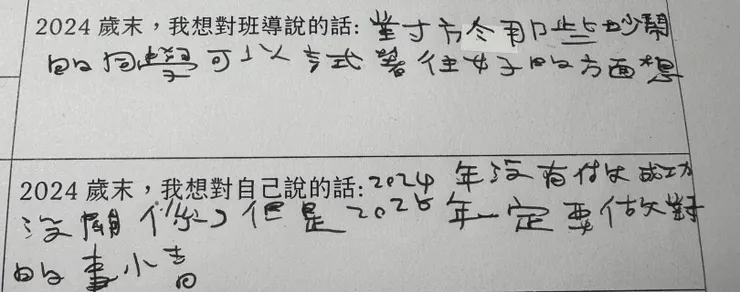 2024 歲末，我想對班導說的話: 對於那些吵鬧
的同學可以試著往好的方面想
2024 歲末，我想對自己說的話:2024 年沒有做成功
沒關係 但是 2025 年一定要做對
的事情